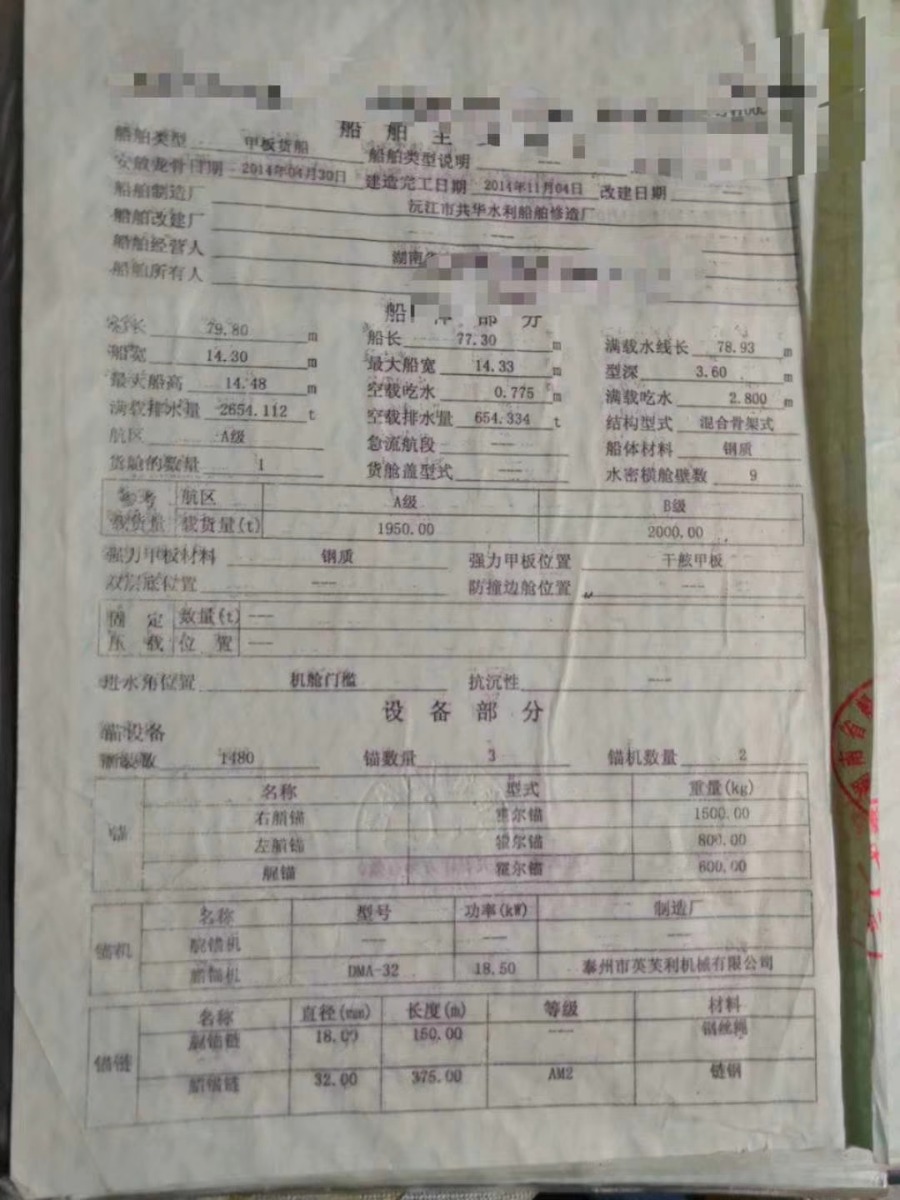 船舶主
船舶类型 甲板货船 船舶类型说明 ---
安放龙骨日期 2014年04月30日 建造完工日期 2014年11月04日 改建日期 ---
船舶制造厂 沅江市共华水利船舶修造厂
船舶改建厂 ---
船舶经营人 湖南
船舶所有人
船 体 部 分
总长 79.80 m 船长 77.30 m 满载水线长 78.93 m
船宽 14.30 m 最大船宽 14.33 m 型深 3.60 m
最大船高 14.48 m 空载吃水 0.775 m 满载吃水 2.800 m
满载排水量 2654.112 t 空载排水量 654.334 t 结构型式 混合骨架式
航区 A级 急流航段 --- 船体材料 钢质
货舱的数量 1 货舱盖型式 --- 水密横舱壁数 9
参考 航区 A级 B级
载货量 载货量(t) 1950.00 2000.00
强力甲板材料 钢质 强力甲板位置 干舷甲板
双层底位置 --- 防撞边舱位置 ---
固 定 数量(t) ---
压 载 位 置 ---
进水角位置 机舱门槛 抗沉性 ---
设 备 部 分
锚设备
舾装数 1480 锚数量 3 锚机数量 2
锚 名称 型式 重量(kg)
右艏锚 霍尔锚 1500.00
左艏锚 霍尔锚 800.00
艉锚 霍尔锚 600.00
锚机 名称 型号 功率(kW) 制造厂
艉锚机 --- --- ---
艏锚机 DMA-32 18.50 泰州市英芙利机械有限公司
锚链 名称 直径(mm) 长度(m) 等级 材料
艉锚链 18.00 150.00 --- 钢丝绳
艏锚链 32.00 375.00 AM2 链钢